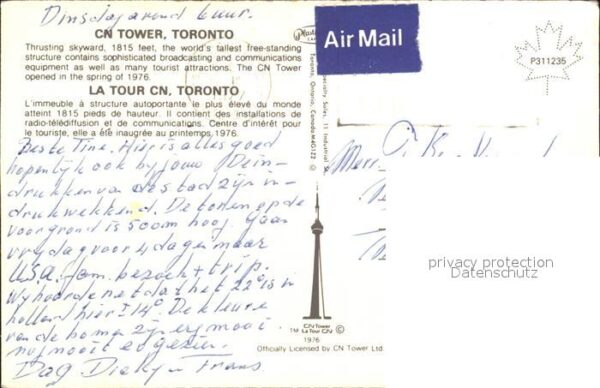 Dinsdagavond 6 uur.
CN TOWER, TORONTO
Thrusting skyward, 1815 feet, the world's tallest free-standing
structure contains sophisticated broadcasting and communications
equipment as well as many tourist attractions. The CN Tower
opened in the spring of 1976.
LA TOUR CN, TORONTO
L'immeuble à structure autoportante le plus élevé du monde
atteint 1815 pieds de hauteur. Il contient des installations de
radio-télédiffusion et de communications. Centre d'intérêt pour
le touriste, elle a été inaugrée au printemps 1976.
Beste Tine, Hier is alles goed
hopelijk ook bij jouw! De in-
drukken van de stad zijn in-
drukwekkend. De toren op de
voorgrond is 500m hoog. Gaan
vrijdag voor 4 dagen naar
USA. fam. bezoek + trip.
Wij hoorde net dat het 22° is in
holland hier ± 14°. De kleuren
van de bomen zijn erg mooi
nog nooit zo gezien.
Dag Dicky - Frans
Air Mail
P311235
Specialty Sales, 15 Industrial
Toronto, Ontario, Canada M4G1Z2
Merr.
CN Tower
La Tour CN
TM
©
1976
Officially Licensed by CN Tower Ltd
privacy protection
Datenschutz